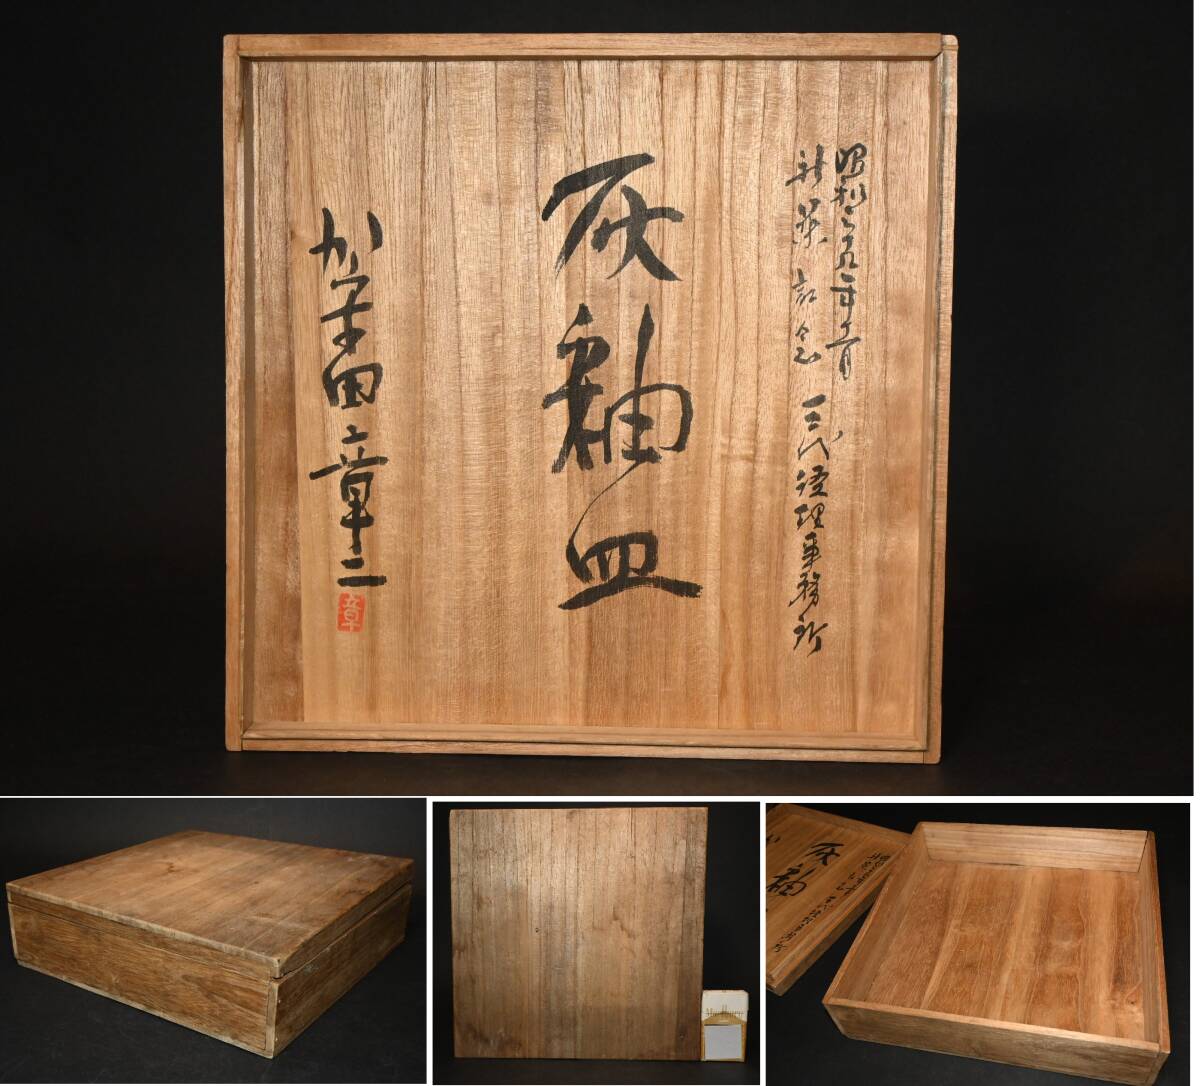 昭和年月
新築記念 三代経理事務所
灰釉皿
加守田章二
章